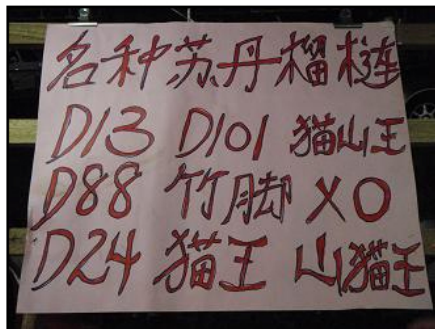 名种苏丹榴梿
D13 D101 猫山王
D88 竹脚 XO
D24 猫王 山猫王